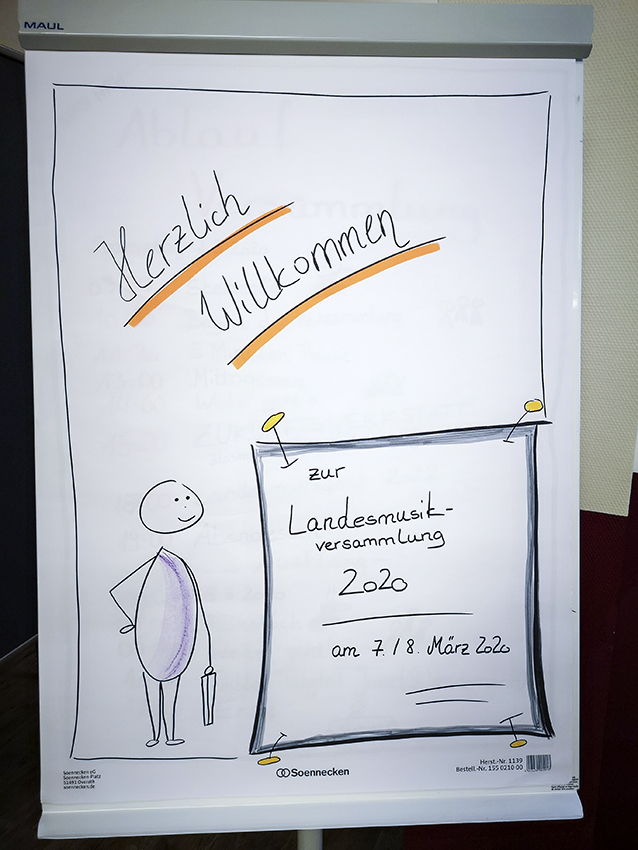 MAUL
Herzlich
Willkommen
zur
Landesmusik-
versammlung
2020
am 7. / 8. März 2020
Soennecken eG
Soennecken-Platz
51491 Overath
soennecken.de
Soennecken
Herst.-Nr. 1139
Bestell.-Nr. 155 0210 00